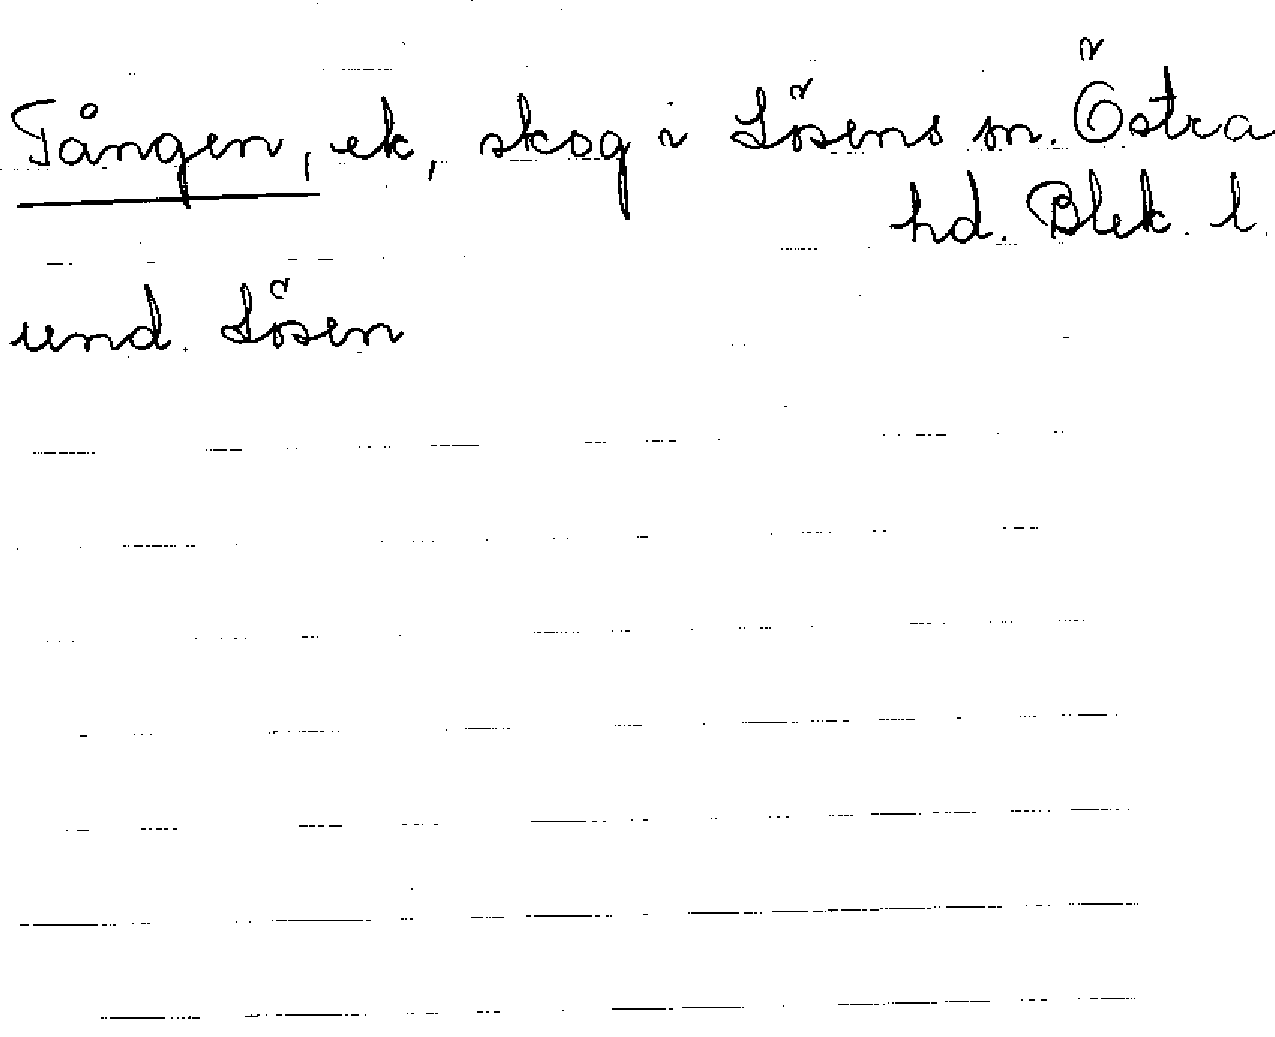 Tången, ek, skog i Lösens sn. Östra
hd. Blek. l.
und. Lösen